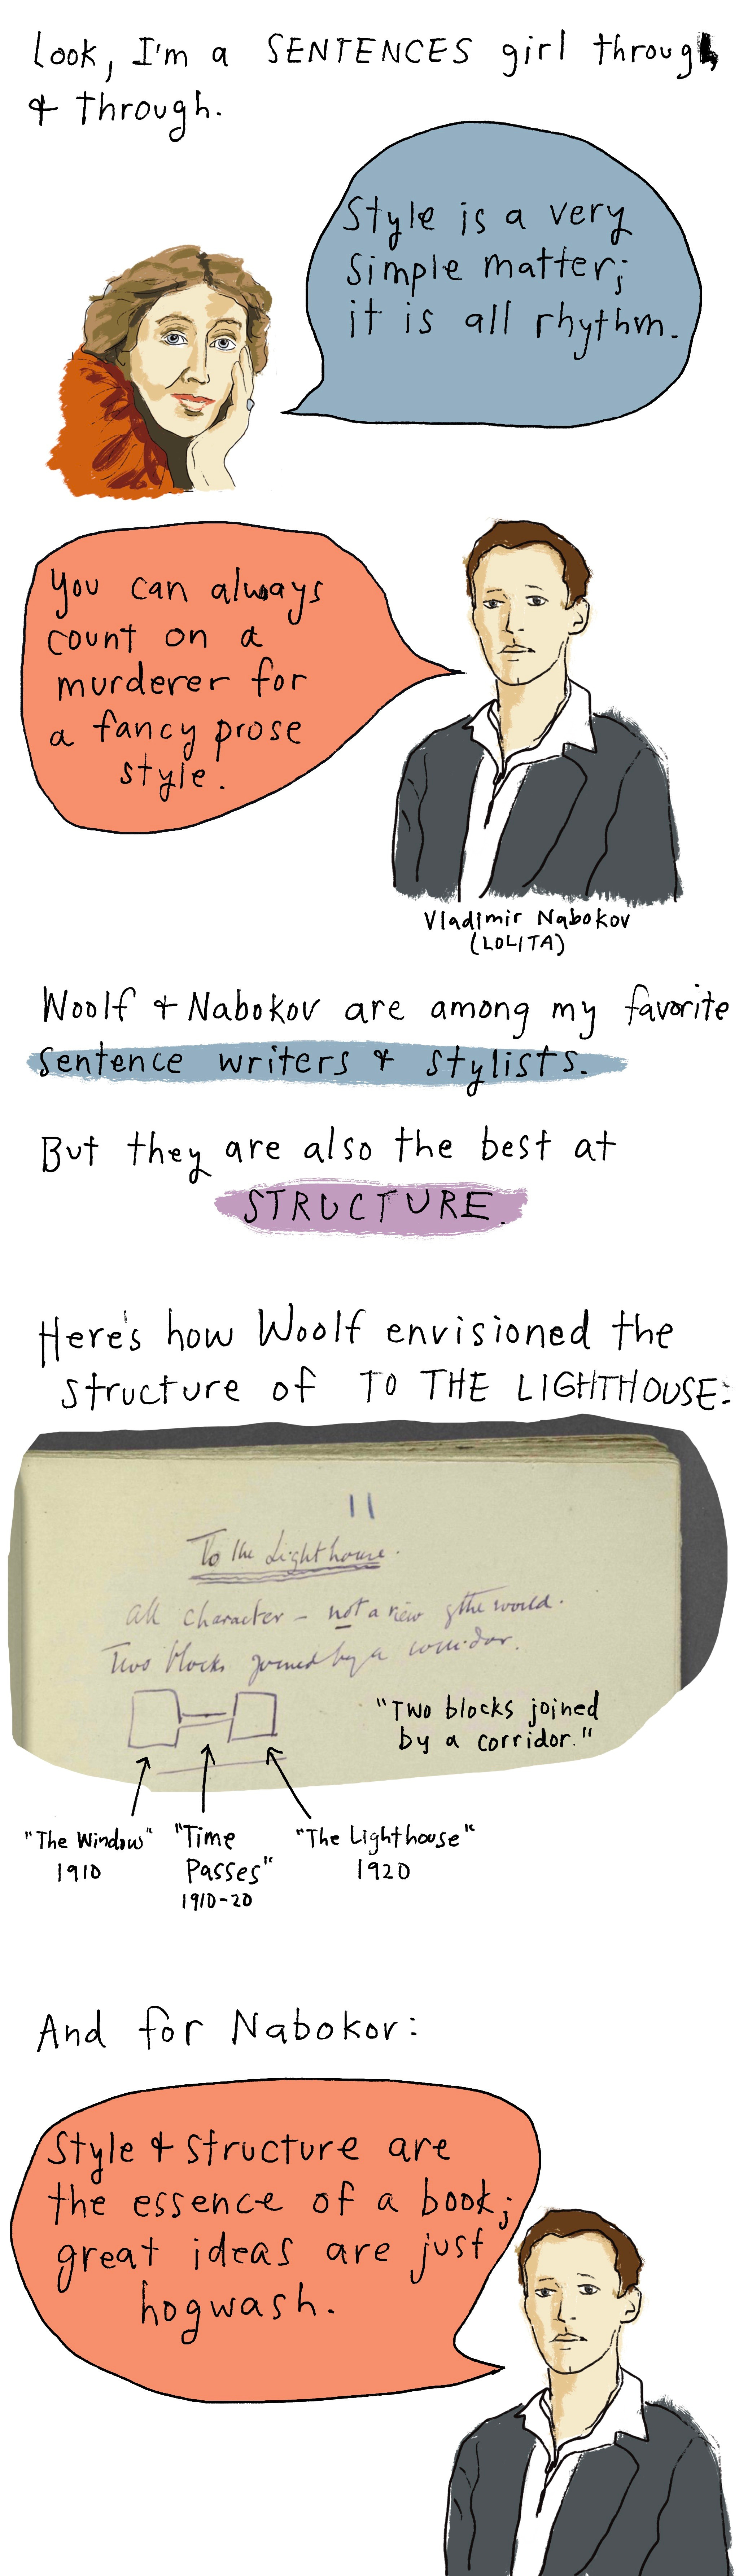 Look, I'm a SENTENCES girl through
& through.
Style is a very
simple matter;
it is all rhythm.
You can always
count on a
murderer for
a fancy prose
style.
Vladimir Nabokov
(LOLITA)
Woolf & Nabokov are among my favorite
sentence writers & stylists.
But they are also the best at
STRUCTURE.
Here's how Woolf envisioned the
structure of TO THE LIGHTHOUSE:
11
To the Lighthouse.
all character - not a view of the world.
Two blocks joined by a corridor.
"Two blocks joined
by a corridor."
"The Window"
1910
"Time
Passes"
1910-20
"The Lighthouse"
1920
And for Nabokov:
Style & structure are
the essence of a book;
great ideas are just
hogwash.